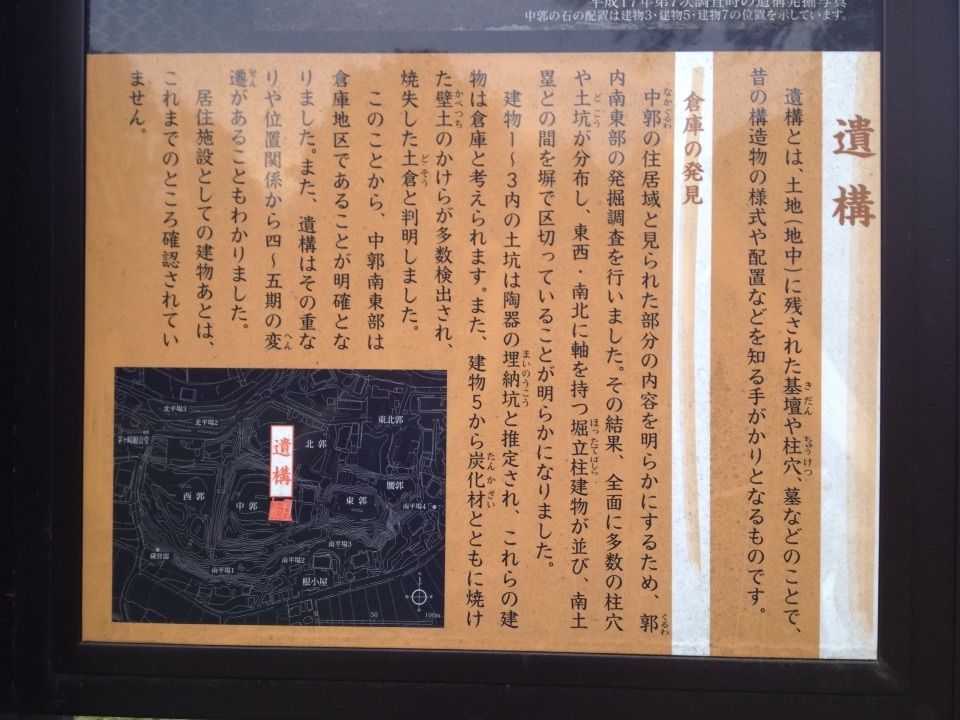 平成17年第7次調査時の遺構発掘写真
中郭の石の配置は建物3・建物5・建物7の位置を示しています。
遺構
遺構とは、土地(地中)に残された基壇や柱穴、墓などのことで、
昔の構造物の様式や配置などを知る手がかりとなるものです。
倉庫の発見
中郭の住居域と見られた部分の内容を明らかにするため、郭
内南東部の発掘調査を行いました。その結果、全面に多数の柱穴
や土坑が分布し、東西・南北に軸を持つ堀立柱建物が並び、南土
塁との間を塀で区切っていることが明らかになりました。
建物1～3内の土坑は陶器の埋納坑と推定され、これらの建
物は倉庫と考えられます。また、建物5から炭化材とともに焼け
た壁土のかけらが多数検出され、
焼失した土倉と判明しました。
このことから、中郭南東部は
倉庫地区であることが明確とな
りました。また、遺構はその重な
りや位置関係から四～五期の変
遷があることもわかりました。
居住施設としての建物あとは、
これまでのところ確認されてい
ません。
北平場3
北平場2
茅ヶ崎観音堂
北郭
東北郭
遺構
西郭
中郭
東郭
腰郭
南平場4
蔵骨器
南平場1
南平場2
南平場3
根小屋
0 50 100m